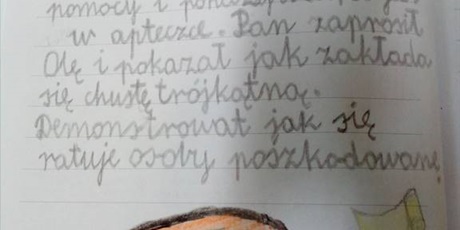 pomocy i
w apteczce. Pan zaprosił
Olę i pokazał jak zakłada
się chustę trójkątną.
Demonstrował jak się
ratuje osoby poszkodowane.